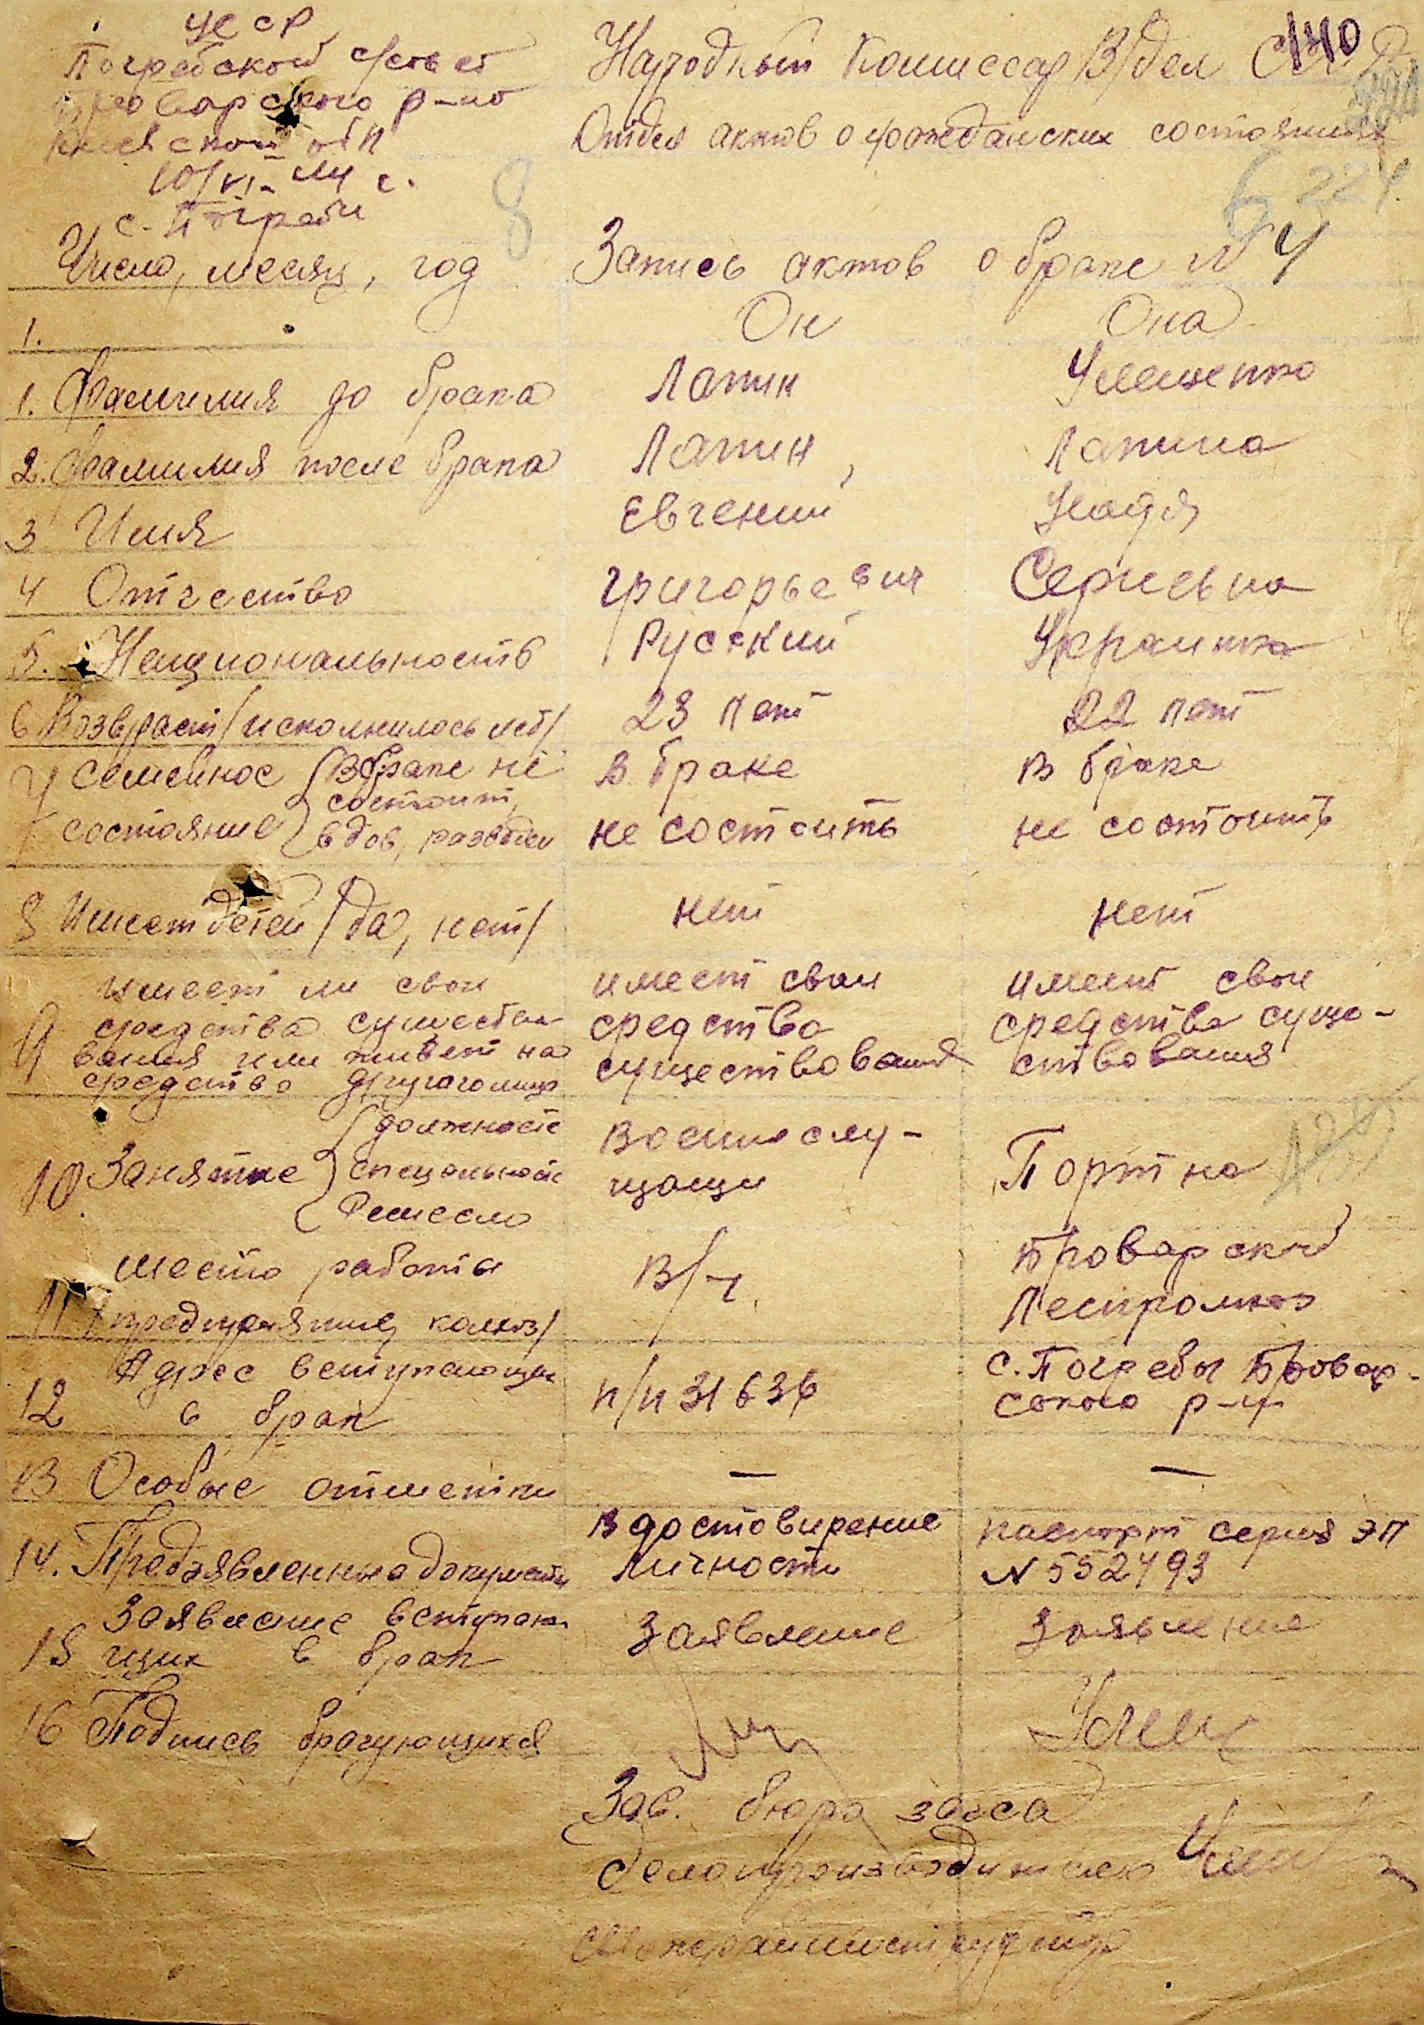 УССР
Погребской с/совет
Броварского р-на
Киевской обл
10/VI-44 г.
с. Погребы
Народный Комиссар В/дел СССР
140
Отдел актов о гражданских состояниях
8
6 224
Число, месяц, год
Запись актов о браке N 4
1.
Он
Она
1. Фамилия до брака
Лапин
Улещенко
2. Фамилия после брака
Лапин,
Лапина
3 Имя
Евгений
Надя
4 Отчество
Григорьевич
5. Национальность
Русский
Украинка
6 Возвраст /исполнилось лет/
23 лет
22 лет
7 Семейное состояние
В браке не состоит, вдов, разведен
В браке не состоить
в браке не состоить
8 Имеет детей /да, нет/
нет
нет
9 имеет ли свои
средства существо-
вания или живет на
средства другого лица
имеет свои
средства
существования
имеет свои
средства суще-
ствования
10 Занятие
должность
специальность
Ремесло
Военнослу-
щащи
Портна
11 место работы
/предприятие, колхоз/
В/ч
Броварской
Леспромхоз
12 Адрес вступающих
в брак
п/п 31636
с. Погребы Бровар-
ского р-н
13 Особые отметки
—
—
14. Предъявленные документы
В достовирение
личности
паспорт серия ЭП
N 552493
15 Заявление вступаю-
щих в брак
Заявление
Заявление
16 Подпись брачующихся
Улещ
Зав. бюро загса
Делопроизводитель